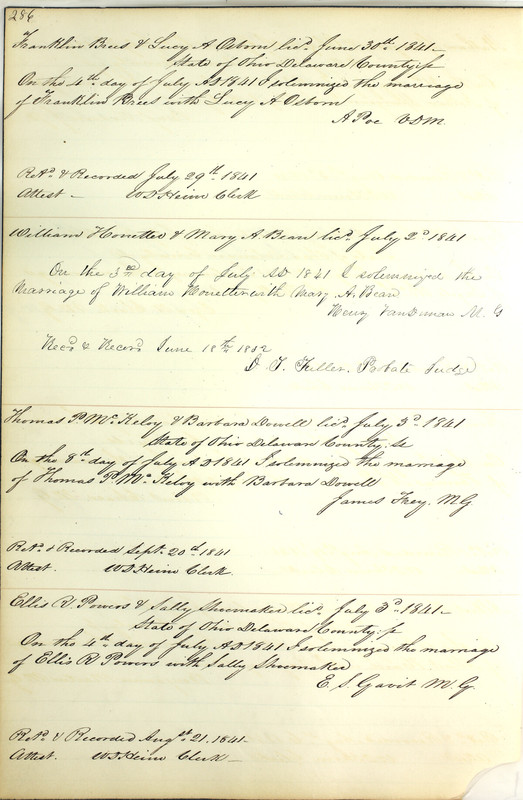 286
Franklin Brees & Lucy A Osborn licd June 30th 1841
State of Ohio Delaware County ss
On the 4th day of July AD 1841 I solemnized the marriage
of Franklin Brees with Lucy A Osborn
A Poe V.D.M
Retd & Recorded July 29th 1841
Attest W D Heim Clerk
William Houretter & Mary A. Bean licd July 2d 1841
On the 3rd day of July AD 1841 I solemnized the
Marriage of William Houretter with Mary A. Bean
Henry Vandeman M. G
Recd & Record June 18th 1852
D T. Fuller. Probate Judge
Thomas P. McKeloy & Barbara Dowell licd July 3d 1841
State of Ohio Delaware County. Ss
On the 8th day of July AD 1841 I solemnized the marriage
of Thomas P. McKeloy with Barbara Dowell
James Frey. MG
Retd & Recorded Sept. 20th 1841
Attest. W D Heim Clerk
Ellis R. Powers & Sally Shoemaker licd July 3d 1841
State of Ohio Delaware County ss
On the 4th day of July AD 1841 I solemnized the marriage
of Ellis R Powers with Sally Shoemaker
E. S. Gavit M. G.
Retd & Recorded Augst 21. 1841
Attest. W D Heim Clerk